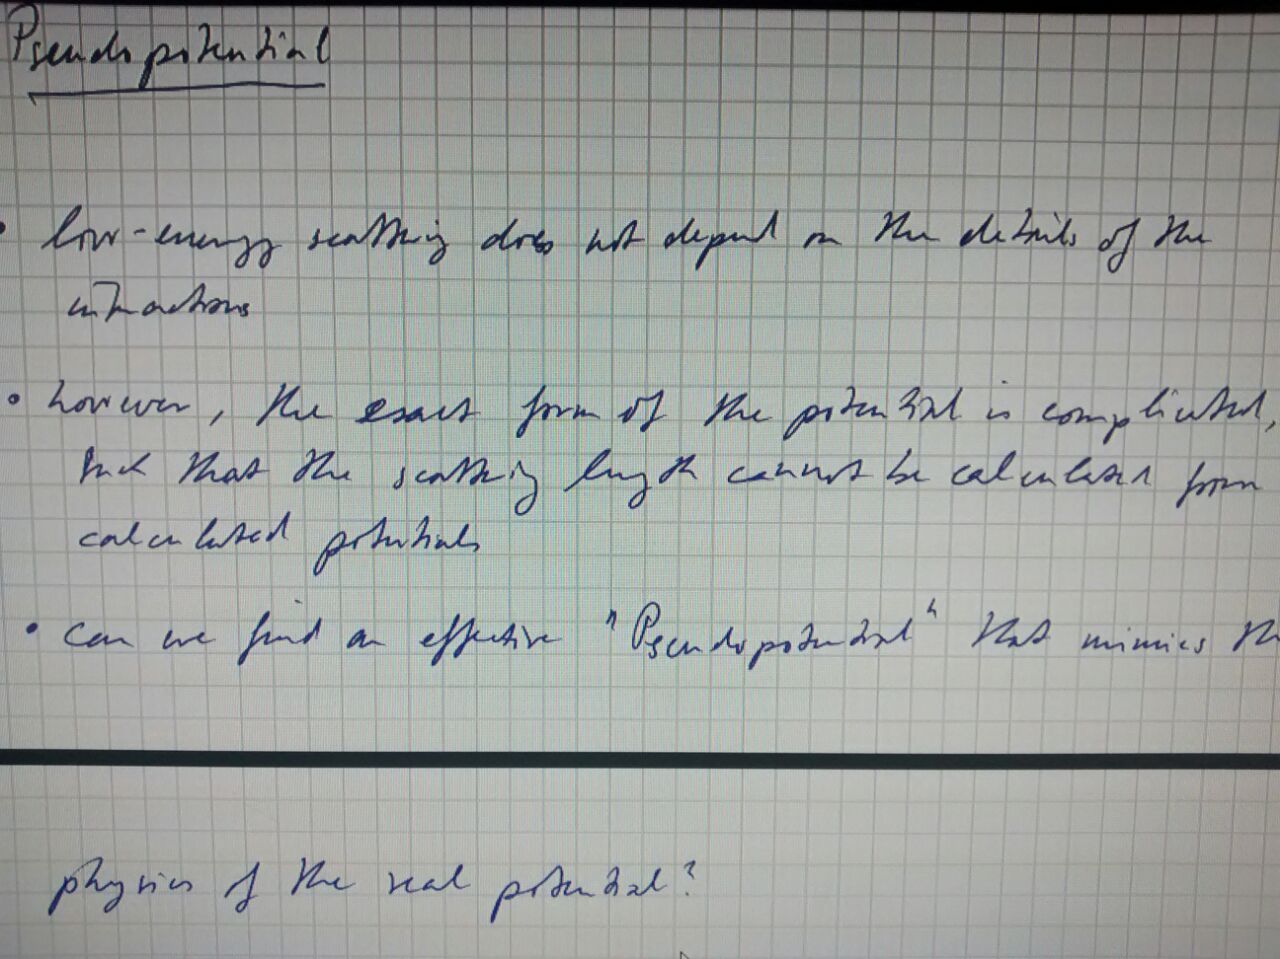 Pseudopotential
• low-energy scattering does not depend on the details of the
interactions
• however, the exact form of the potential is complicated,
such that the scattering length cannot be calculated from
calculated potentials
• can we find an effective "Pseudopotential" that mimics the
physics of the real potential?